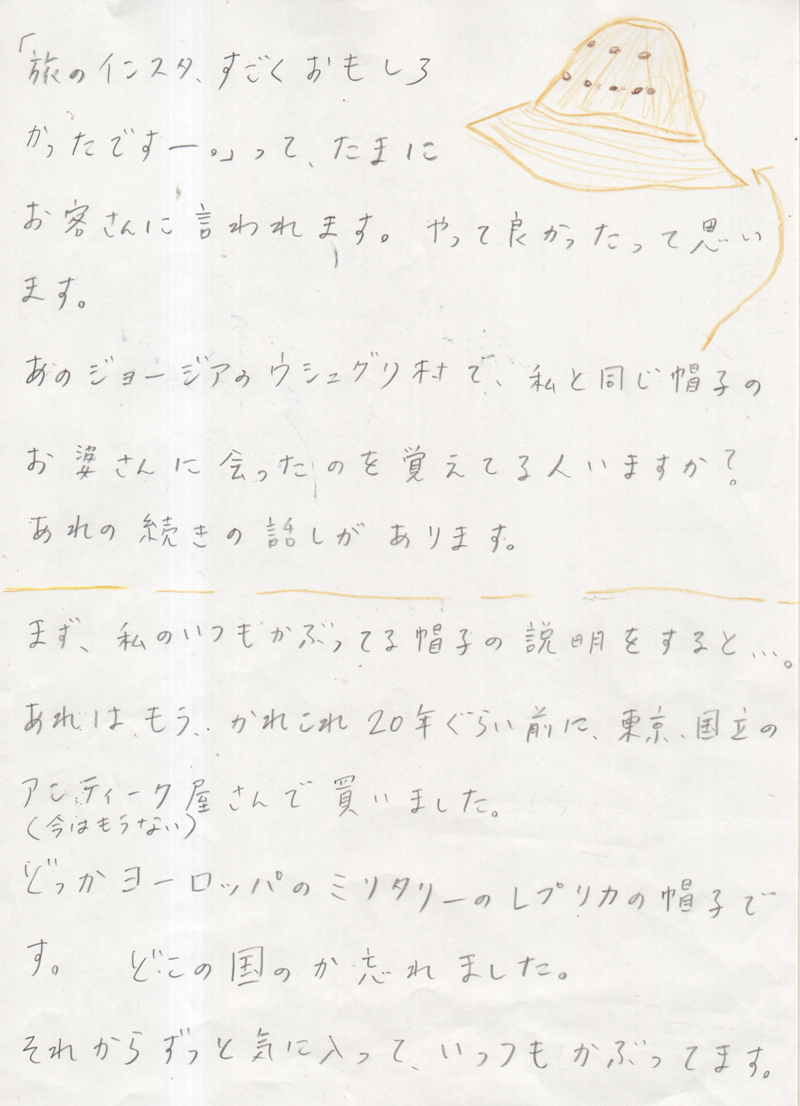 「旅のインスタ、すごくおもしろ
かったですー。」って、たまに
お客さんに言われます。やって良かったって思い
ます。
あのジョージアのウシュグリ村で、私と同じ帽子の
お婆さんに会ったのを覚えてる人いますか?
あれの続きの話しがあります。
まず、私のいつもかぶってる帽子の説明をすると…。
あれは、もう、かれこれ20年ぐらい前に、東京、国立の
アンティーク屋さんで買いました。
(今はもうない)
どっかヨーロッパのミリタリーのレプリカの帽子で
す。 どこの国のか忘れました。
それからずっと気に入って、いっつもかぶってます。